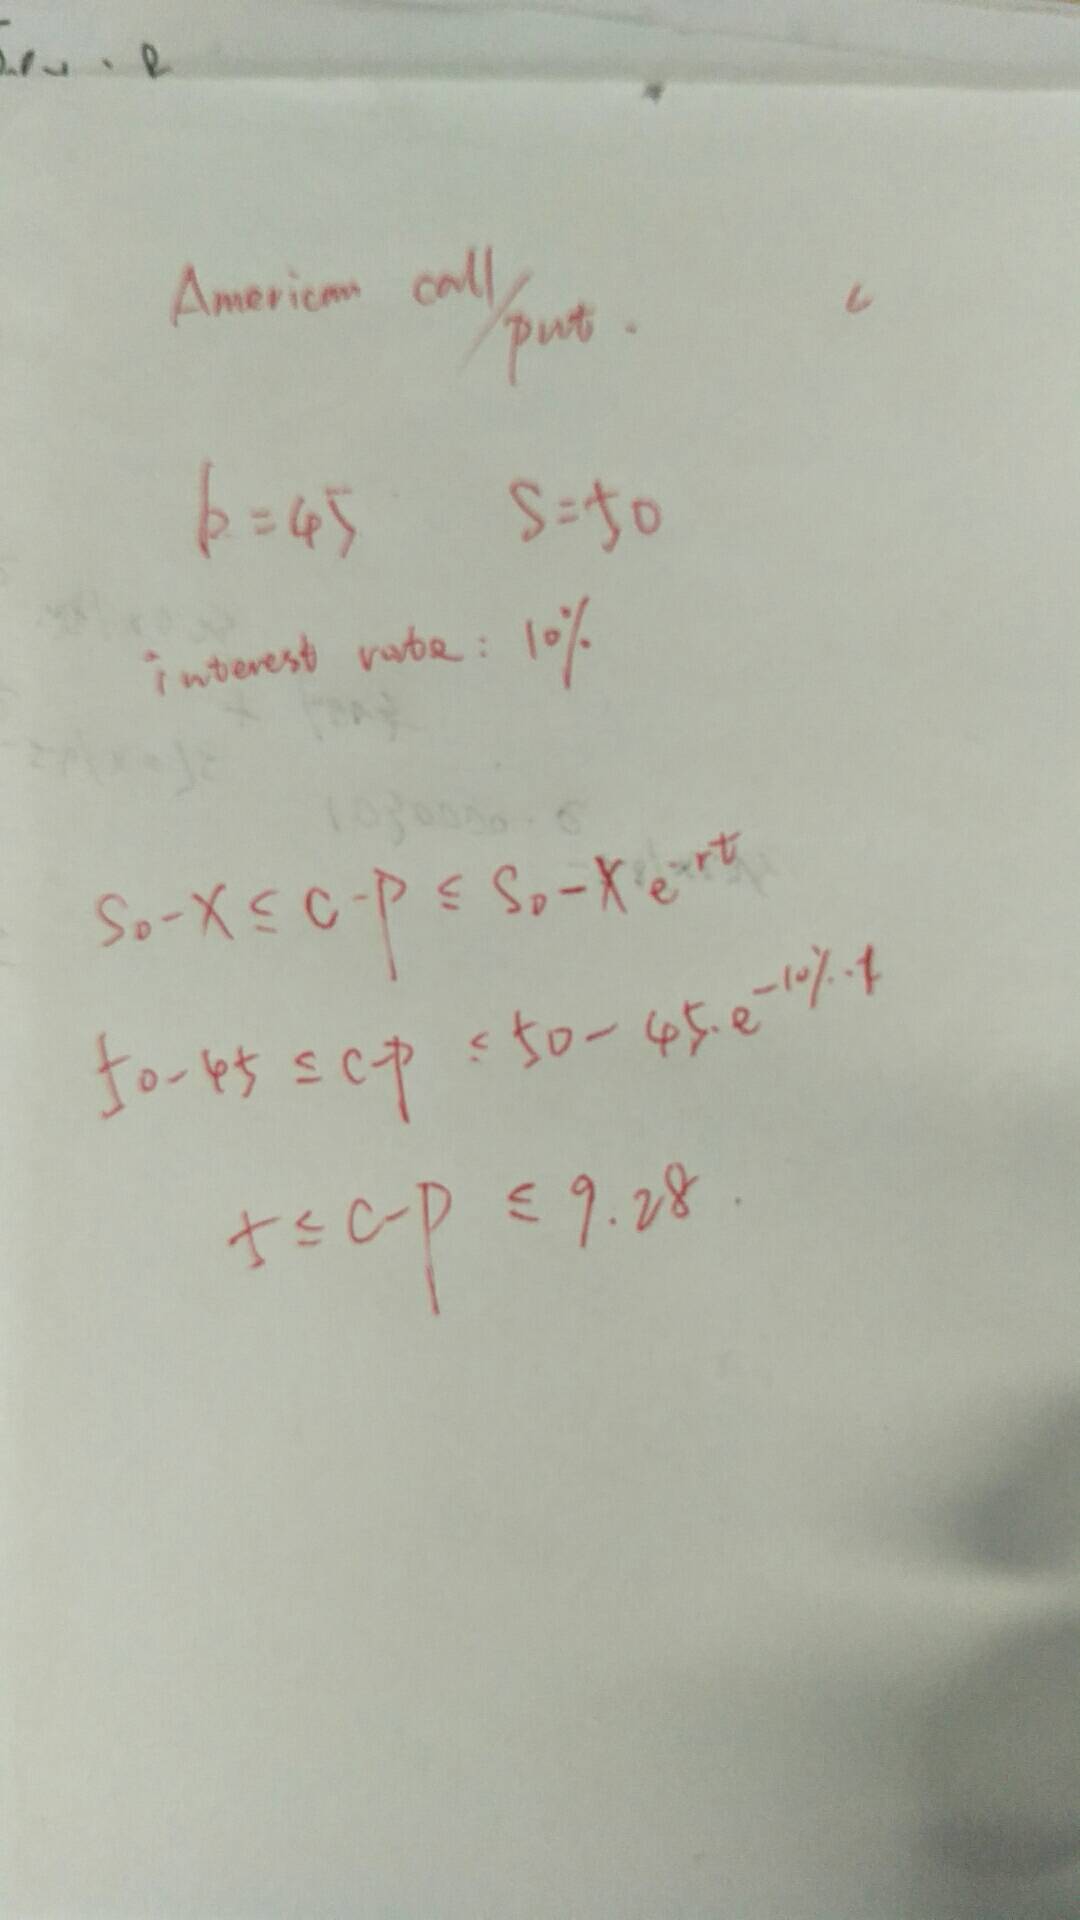 American call/put.
k=45 S=50
interest rate: 10%
S₀-X ≤ C-P ≤ S₀-X·e^-rt
50-45 ≤ C-P ≤ 50-45·e^-10%·1
5 ≤ C-P ≤ 9.28.